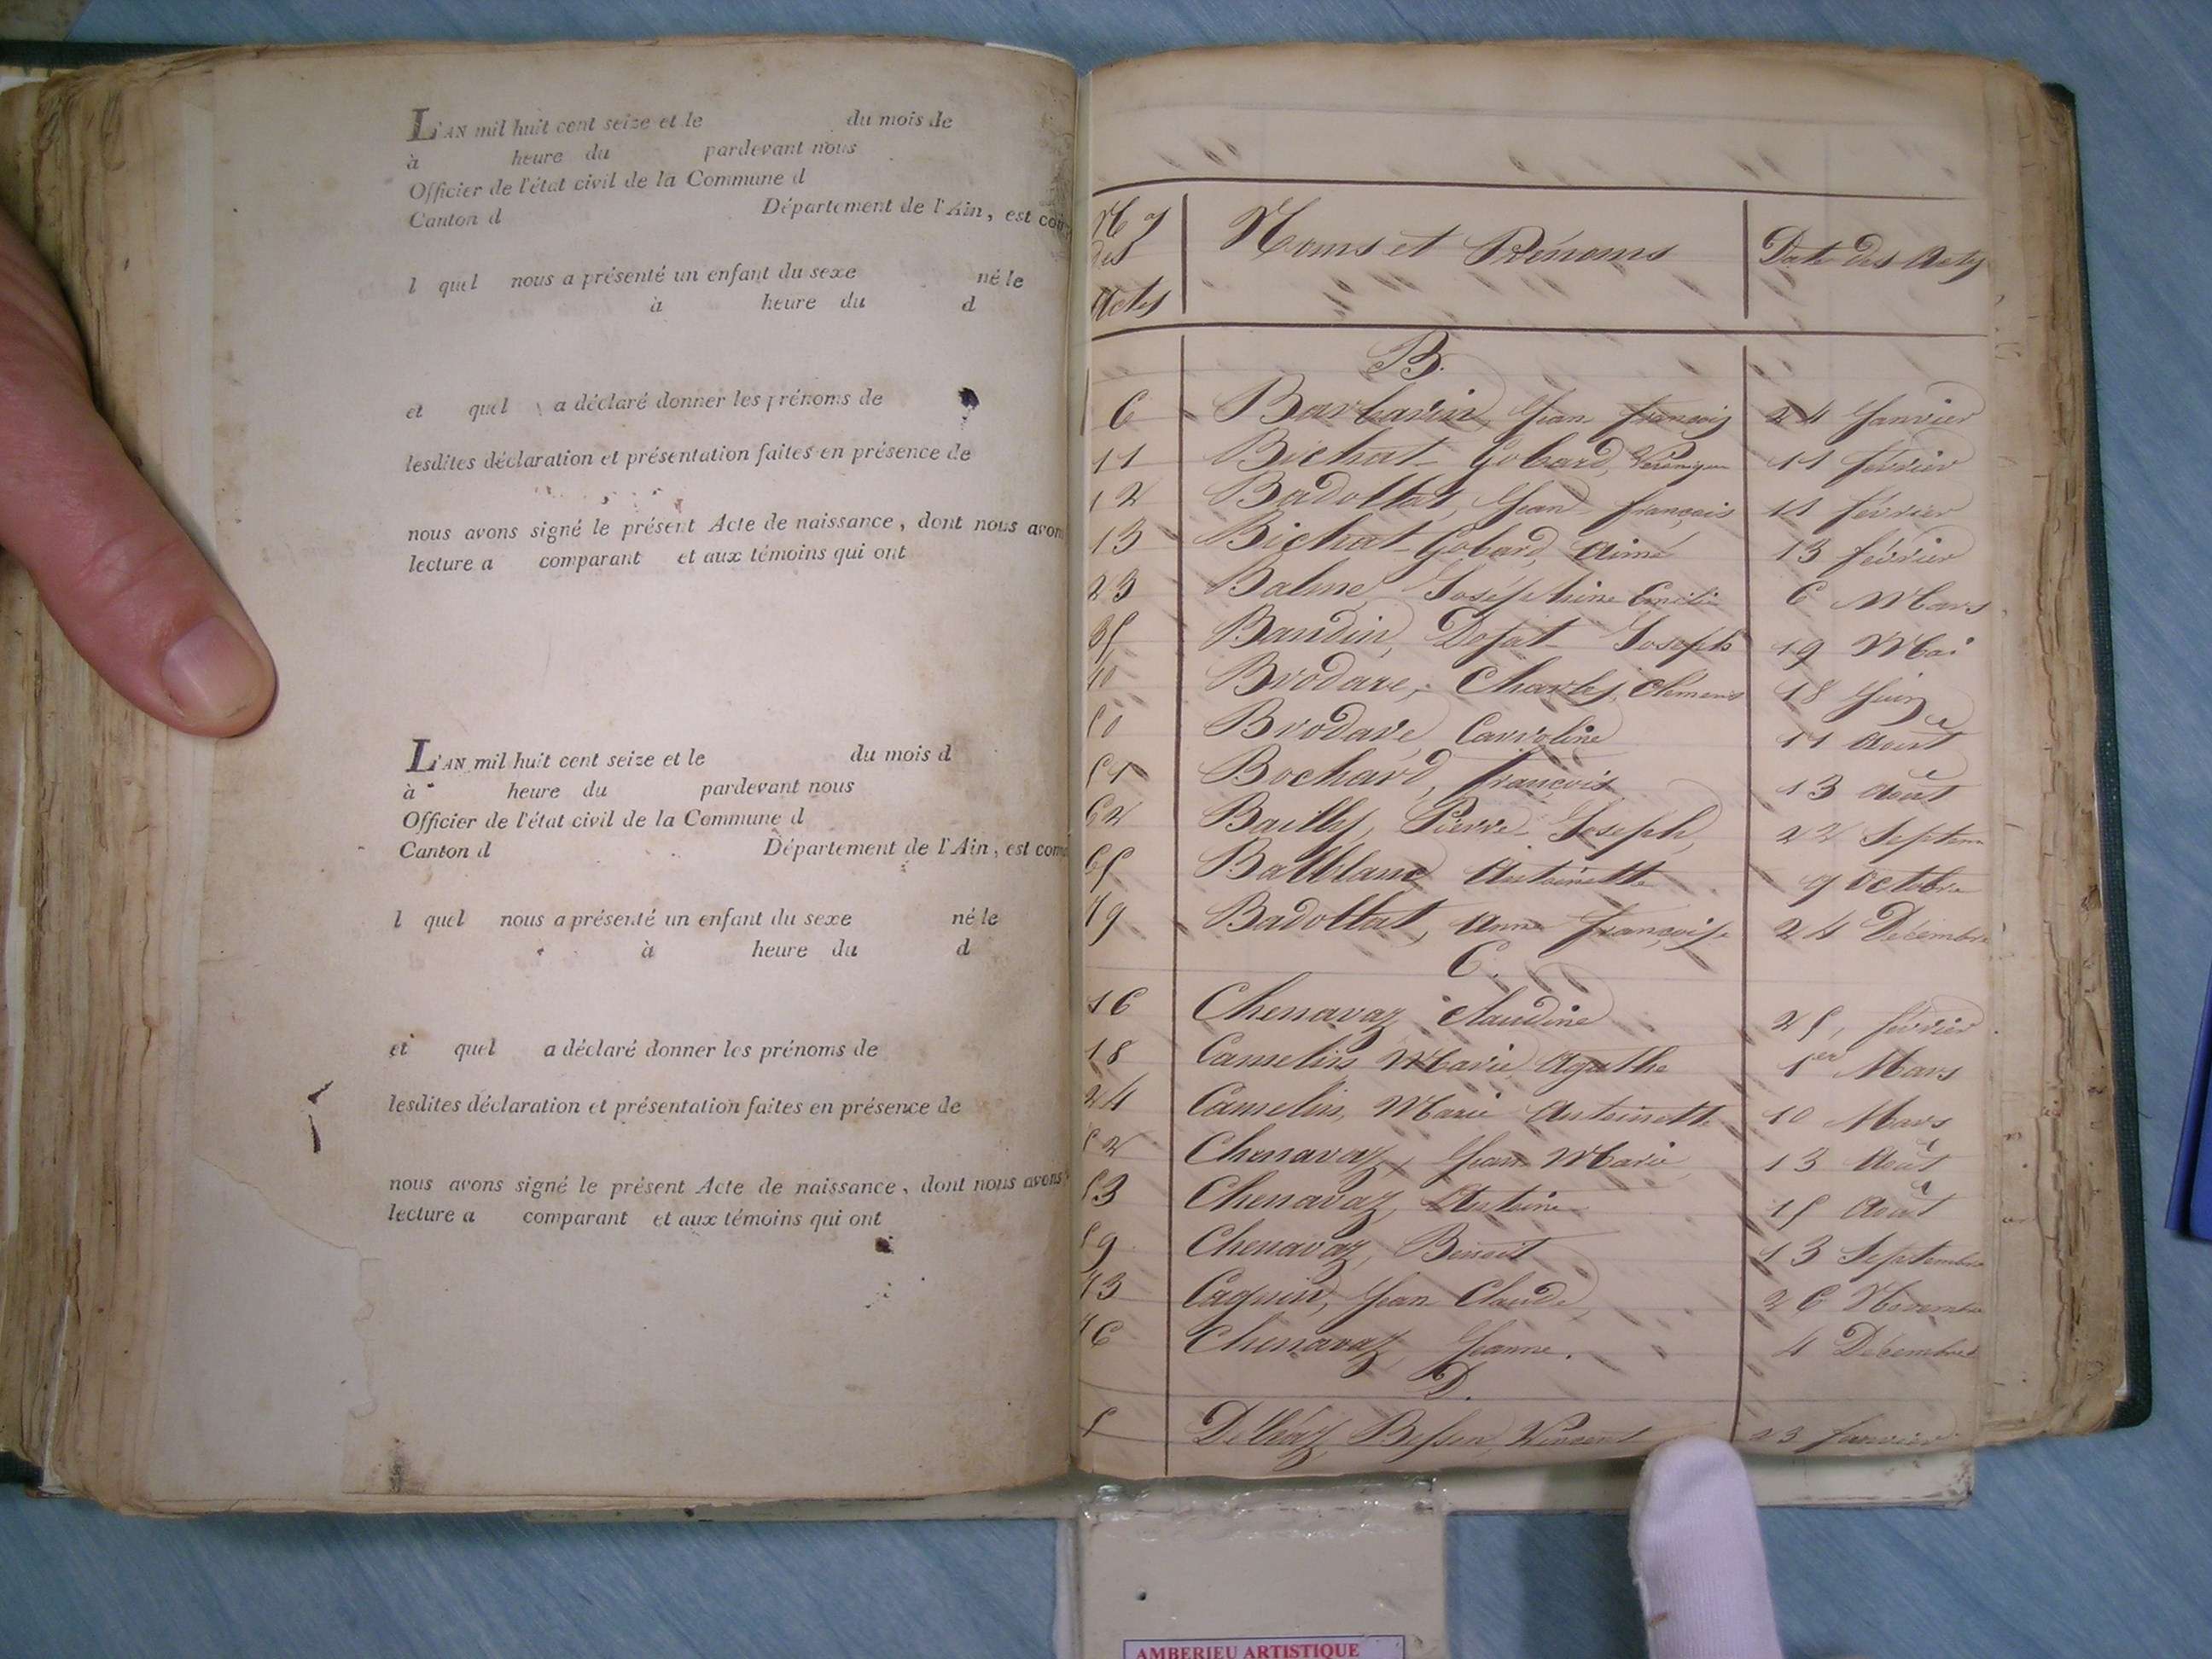 L'AN mil huit cent seize et le du mois de
à heure du pardevant nous
Officier de l'état civil de la Commune d
Canton d Département de l'Ain, est com
l quel nous a présenté un enfant du sexe né le
à heure du d
et quel a déclaré donner les prénoms de
lesdites déclaration et présentation faites en présence de
nous avons signé le présent Acte de naissance, dont nous avon
lecture a comparant et aux témoins qui ont
L'AN mil huit cent seize et le du mois d
à heure du pardevant nous
Officier de l'état civil de la Commune d
Canton d Département de l'Ain, est com
l quel nous a présenté un enfant du sexe né le
à heure du d
et quel a déclaré donner les prénoms de
lesdites déclaration et présentation faites en présence de
nous avons signé le présent Acte de naissance, dont nous avons
lecture a comparant et aux témoins qui ont
Nos des Actes Noms et Prénoms Date des Actes
B.
6 Barbarin, Jean françois 24 Janvier
11 Bichat-Gobard, 11 février
12 Badollat, Jean françois 11 février
13 Bichat-Gobard, Aimé 13 février
23 Balme, Joséphine Emélie 6 Mars
35 Baudin, Joseph 19 Mai
40 Brodare, Charles, Clément 18 Juin
50 Brodare, Carroline 11 Août
51 Bochard, françois 13 Août
62 Bailly, Pierre Joseph, 22 Septem
65 Balblanc Antoinette 9 Octobre
79 Badollat, Anne françoise 24 Décembre
C.
16 Chenavaz, Claudine 25, février
18 Camelin, Marie Agathe 1er Mars
24 Camelin, Marie Antoinette 10 Mars
52 Chenavaz, Jean Marie 13 Août
53 Chenavaz, Antoine 15 Août
59 Chenavaz, Benoit 13 Septembre
73 Caquin, Jean Claude, 26 Novembre
76 Chenavaz, Jeanne. 4 Décembre
D.
5 Vincent 23 Janvier
AMBERIEU ARTISTIQUE